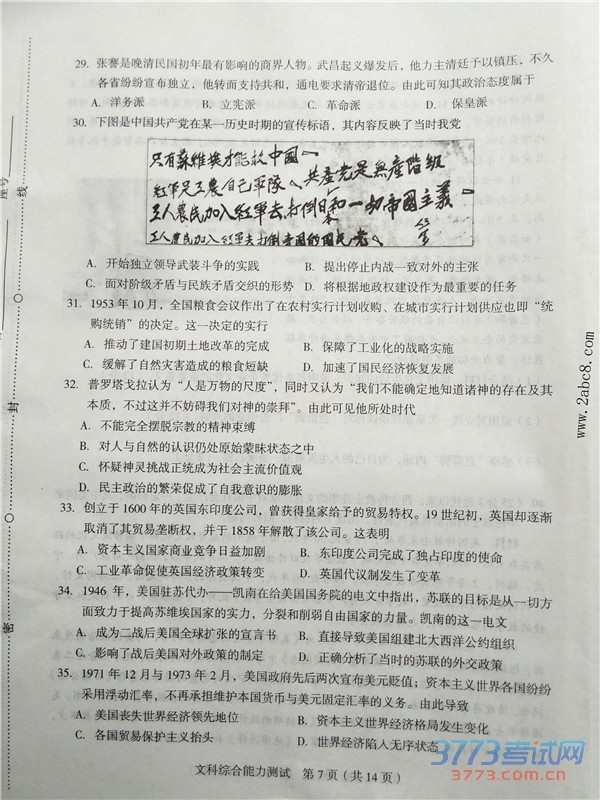 29. 张謇是晚清民国初年最有影响的商界人物。武昌起义爆发后，他力主清廷予以镇压，不久
各省纷纷宣布独立，他转而支持共和，通电要求清帝退位。由此可知其政治态度属于
A. 洋务派 B. 立宪派 C. 革命派 D. 保皇派
30. 下图是中国共产党在某一历史时期的宣传标语，其内容反映了当时我党
只有蘇維埃才能救中國
紅軍是工農自己軍隊 共產党是無產階級
工人農民加入紅軍去打倒日本和一切帝國主義
工人農民加入紅軍去打倒帝国的國民党
A. 开始独立领导武装斗争的实践 B. 提出停止内战一致对外的主张
C. 面对阶级矛盾与民族矛盾交织的形势 D. 将根据地政权建设作为最重要的任务
31. 1953 年 10 月，全国粮食会议作出了在农村实行计划收购、在城市实行计划供应也即“统
购统销”的决定。这一决定的实行
A. 推动了建国初期土地改革的完成 B. 保障了工业化的战略实施
C. 缓解了自然灾害造成的粮食短缺 D. 加速了国民经济恢复发展
32. 普罗塔戈拉认为“人是万物的尺度”，同时又认为“我们不能确定地知道诸神的存在及其
本质，不过这并不妨碍我们对神的崇拜”。由此可见他所处时代
A. 不能完全摆脱宗教的精神束缚
B. 对人与自然的认识仍处原始蒙昧状态之中
C. 怀疑神灵挑战正统成为社会主流价值观
D. 民主政治的繁荣促成了自我意识的膨胀
33. 创立于 1600 年的英国东印度公司，曾获得皇家给予的贸易特权。19 世纪初，英国却逐渐
取消了其贸易垄断权，并于 1858 年解散了该公司。这表明
A. 资本主义国家商业竞争日益加剧 B. 东印度公司完成了独占印度的使命
C. 工业革命促使英国经济政策转变 D. 英国代议制发生了变革
34. 1946 年，美国驻苏代办——凯南在给美国国务院的电文中指出，苏联的目标是从一切方
面致力于提高苏维埃国家的实力，分裂和削弱自由国家的力量。凯南的这一电文
A. 成为二战后美国全球扩张的宣言书 B. 直接导致美国组建北大西洋公约组织
C. 影响了战后美国对外政策的制定 D. 正确分析了当时的苏联的外交政策
35. 1971 年 12 月与 1973 年 2 月，美国政府先后两次宣布美元贬值；资本主义世界各国纷纷
采用浮动汇率，不再承担维护本国货币与美元固定汇率的义务。由此导致
A. 美国丧失世界经济领先地位 B. 资本主义世界经济格局发生变化
C. 各国贸易保护主义抬头 D. 世界经济陷人无序状态
文科综合能力测试 第 7 页（共 14 页）
座号
线
封
密
www.2abc8.com
3773考试网
3773.com.cn